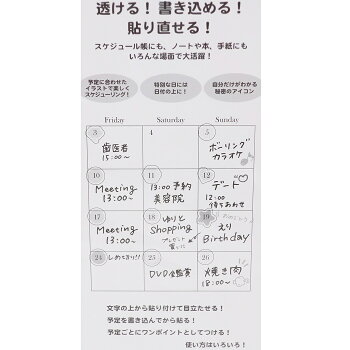 透ける！ 書き込める！
貼り直せる！
スケジュール帳にも、ノートや本、手紙にも
いろんな場面で大活躍！
予定に合わせた
イラストで楽しく
スケジューリング！
特別な日には
日付の上に！
自分だけがわかる
秘密のアイコン
Friday Saturday Sunday
3 4 5
歯医者
15:00〜
ボーリング
カラオケ
10 11 12
Meeting
13:00〜
13:00 予約
美容院
デート
12:00
待ちあわせ
17 18 19
Meeting
13:00〜
ゆりと
Shopping
プレゼント
買った
えり
Birthday
24 しめきり!! 25 26
DVD鑑賞
焼き肉
18:00〜
文字の上から貼り付けて目立たせる！
予定を書き込んでから貼る！
予定ごとにワンポイントとしてつける！
使い方はいろいろ！